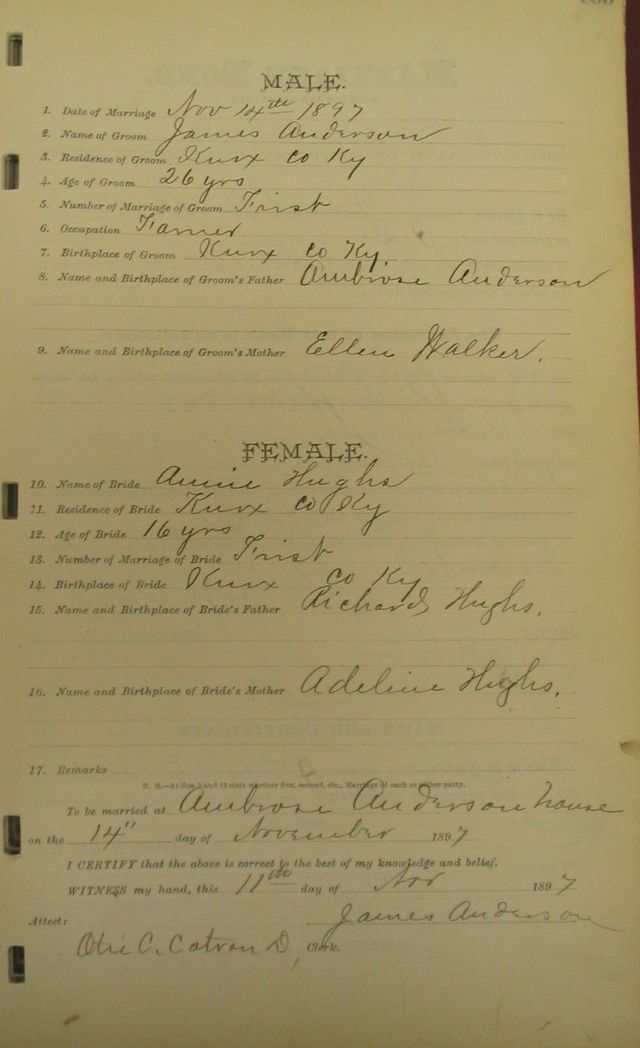 MALE.
1. Date of Marriage Nov 14th 1897
2. Name of Groom James Anderson
3. Residence of Groom Knox Co Ky
4. Age of Groom 26 yrs
5. Number of Marriage of Groom Frist
6. Occupation Farmer
7. Birthplace of Groom Knox Co Ky.
8. Name and Birthplace of Groom's Father Ambrose Anderson
9. Name and Birthplace of Groom's Mother Ellen Walker.
FEMALE.
10. Name of Bride Annie Hughs
11. Residence of Bride Knox Co Ky
12. Age of Bride 16 yrs
13. Number of Marriage of Bride Frist
14. Birthplace of Bride Knox Co Ky
15. Name and Birthplace of Bride's Father Richard Hughs.
16. Name and Birthplace of Bride's Mother Adeline Hughs.
17. Remarks
N. B.—At Nos. 5 and 13 state whether first, second, etc., Marriage of each or either party.
To be married at Ambrose Anderson house
on the 14" day of November 1897
I CERTIFY that the above is correct to the best of my knowledge and belief.
WITNESS my hand, this 11th day of Nov 1897
James Anderson
Attest:
C. Catron D, Clerk.